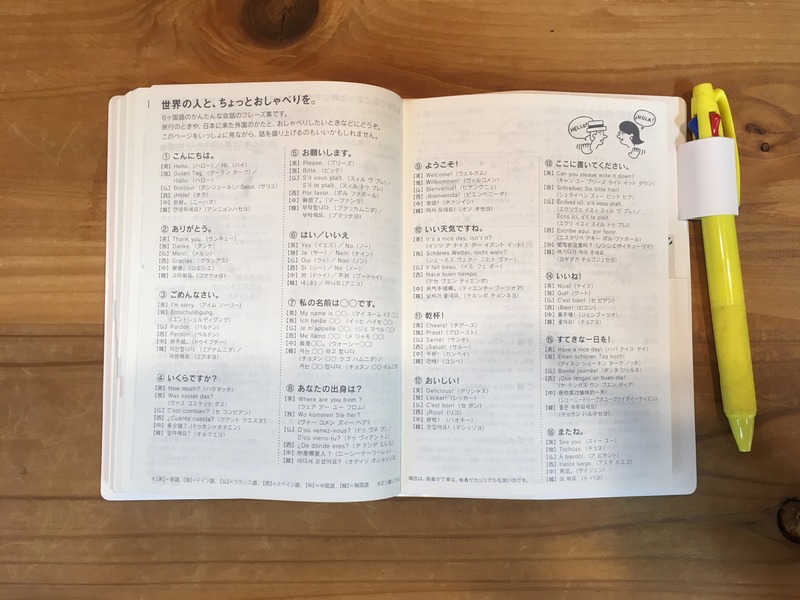 世界の人と、ちょっとおしゃべりを。
6ヶ国語のかんたんな会話のフレーズ集です。
旅行のときや、日本に来た外国のかたと、おしゃべりしたいときなどにどうぞ。
このページをいっしょに見ながら、話を盛り上げるのもいいかもしれません。
① こんにちは。
[英] Hello.（ハロー）／Hi.（ハイ）
[独] Guten Tag.（グーテン ターク）／
Hallo.（ハロー）
[仏] Bonjour（ボンジュール）／Salut.（サリュ）
[西] ¡Hola!（オラ）
[中] 你好。（ニーハオ）
[韓] 안녕하세요?（アンニョンハセヨ）
② ありがとう。
[英] Thank you.（サンキュー）
[独] Danke.（ダンケ）
[仏] Merci.（メルシ）
[西] Gracias.（グラシアス）
[中] 谢谢。（シエシエ）
[韓] 고마워요.（コマウォヨ）
③ ごめんなさい。
[英] I'm sorry.（アイム ソーリー）
[独] Entschuldigung.
（エントシュルディグンク）
[仏] Pardon.（パルドン）
[西] Perdón.（ペルドン）
[中] 对不起。（トゥイプチー）
[韓] 미안합니다.（ミアナムニダ）／
미안해요.（ミアネヨ）
④ いくらですか？
[英] How much?（ハウマッチ）
[独] Was kostet das?
（ヴァス コステット ダス）
[仏] C'est combien?（セ コンビアン）
[西] ¿Cuánto cuesta?（クアント クエスタ）
[中] 多少钱?（ドゥオシャオチエン）
[韓] 얼마예요?（オルマエヨ）
⑤ お願いします。
[英] Please.（プリーズ）
[独] Bitte.（ビッテ）
[仏] S'il vous plaît.（スィル ヴ プレ）／
S'il te plaît.（スィル トゥ プレ）
[西] Por favor.（ポル ファボール）
[中] 麻烦了。（マーファンラ）
[韓] 부탁합니다.（プタッカムニダ）／
부탁해요.（プタッケヨ）
⑥ はい／いいえ
[英] Yes（イエス）／No（ノー）
[独] Ja（ヤー）／Nein（ナイン）
[仏] Oui（ウィ）／Non（ノン）
[西] Sí（シー）／No（ノー）
[中] 对（ドゥイ）／不対（プードゥイ）
[韓] 네（ネ）／아니요（アニョ）
⑦ 私の名前は〇〇です。
[英] My name is 〇〇.（マイ ネーム イズ〇〇）
[独] Ich heiße 〇〇.（イッヒ ハイセ〇〇）
[仏] Je m'appelle 〇〇.（ジュ マペル〇〇）
[西] Me llamo 〇〇.（メ リャモ〇〇）
[中] 我是〇〇。（ウォーシー〇〇）
[韓] 저는 〇〇라고 합니다.
（チョヌン 〇〇 ラゴ ハムニダ）／
저는 〇〇예요.（チョヌン 〇〇 イエヨ）
⑧ あなたの出身は？
[英] Where are you from？
（ウェア アー ユー フロム）
[独] Wo kommen Sie her?
（ヴォー コメン ズィー ヘア）
[仏] D'où venez-vous?（ドゥ ヴネ ヴ）／
D'où viens-tu?（ドゥ ヴィアン トゥ）
[西] ¿De dónde eres?（ア ドンデ エレス）
[中] 你是哪里人?（ニーシーナーリーレン）
[韓] 어디서 오셨어요?（オディソ オショッソヨ）
※[英]＝英語、[独]＝ドイツ語、[仏]＝フランス語、[西]＝スペイン語、[中]＝中国語、[韓]＝韓国語
HELLO!
¡HOLA!
⑨ ようこそ！
[英] Welcome!（ウェルカム）
[独] Willkommen!（ヴィルコメン）
[仏] Bienvenue!（ビアンヴニュ）
[西] ¡Bienvenida!（ビエンベニーダ）
[中] 欢迎!（ホァンイン）
[韓] 어서 오세요!（オソ オセヨ）
⑩ いい天気ですね。
[英] It's a nice day, isn't it?
（イッツ ア ナイス デー イズント イット）
[独] Schönes Wetter, nicht wahr?
（シェーネス ヴェター ニヒト ヴァー）
[仏] Il fait beau.（イル フェ ボー）
[西] Hace buen tiempo.
（アセ ブエン ティエンポ）
[中] 天气不错啊。（ティエンチープーツオア）
[韓] 날씨가 좋네요.（ナルシガ チョンネヨ）
⑪ 乾杯！
[英] Cheers!（チアーズ）
[独] Prost!（プロースト）
[仏] Santé!（サンテ）
[西] ¡Salud!（サルー）
[中] 干杯!（ガンペイ）
[韓] 건배!（コンベ）
⑫ おいしい！
[英] Delicious!（デリシャス）
[独] Lecker!（レッカー）
[仏] C'est bon!（セ ボン）
[西] ¡Rico!（リコ）
[中] 好吃!（ハオチー）
[韓] 맛있어요!（マシッソヨ）
場合は、前者が丁寧な、後者がカジュアルな言い方です。
⑬ ここに書いてください。
[英] Can you please write it down?
（キャン ユー プリーズ ライト イット ダウン）
[独] Schreiben Sie bitte hier!
（シュライベン ズィー ビッテ ヒア）
[仏] Écrivez ici, s'il vous plaît.
（エクリヴェ イスィ スィル ヴ プレ）／
Écris ici, s'il te plaît.
（エクリ イスィ スィル トゥ プレ）
[西] Escribe aquí, por favor.
（エスクリベ アキー ポル ファボール）
[韓] 여기다가 적어 주세요.
（ヨギダガ チョゴジュセヨ）
⑭ いいね！
[英] Nice!（ナイス）
[独] Gut!（グート）
[仏] C'est bien!（セ ビアン）
[西] ¡Bien!（ビエン）
[中] 真不错!（ジェンブーツオ）
[韓] 좋아요!（チョアヨ）
⑮ すてきな一日を！
[英] Have a nice day!（ハバ ナイス デイ）
[独] Einen schönen Tag noch!
（アイネン シェーネン ターク ノッホ）
[仏] Bonne journée!（ボンヌ ジュルネ）
[西] ¡Que tengas un buen día!
（ケ テンガス ウン ブエン ディア）
[中] 祝你度过愉快的一天!
[韓] 좋은 하루 되세요!
（チョウン ハルテセヨ）
⑯ またね。
[英] See you.（スィー ユー）
[独] Tschüss.（チュス）
[仏] À bientôt.（ア ビヤント）
[西] Hasta luego.（アスタ ルエゴ）
[中] 再见。（ザイジェン）
[韓] 또 봐요.（ト バヨ）